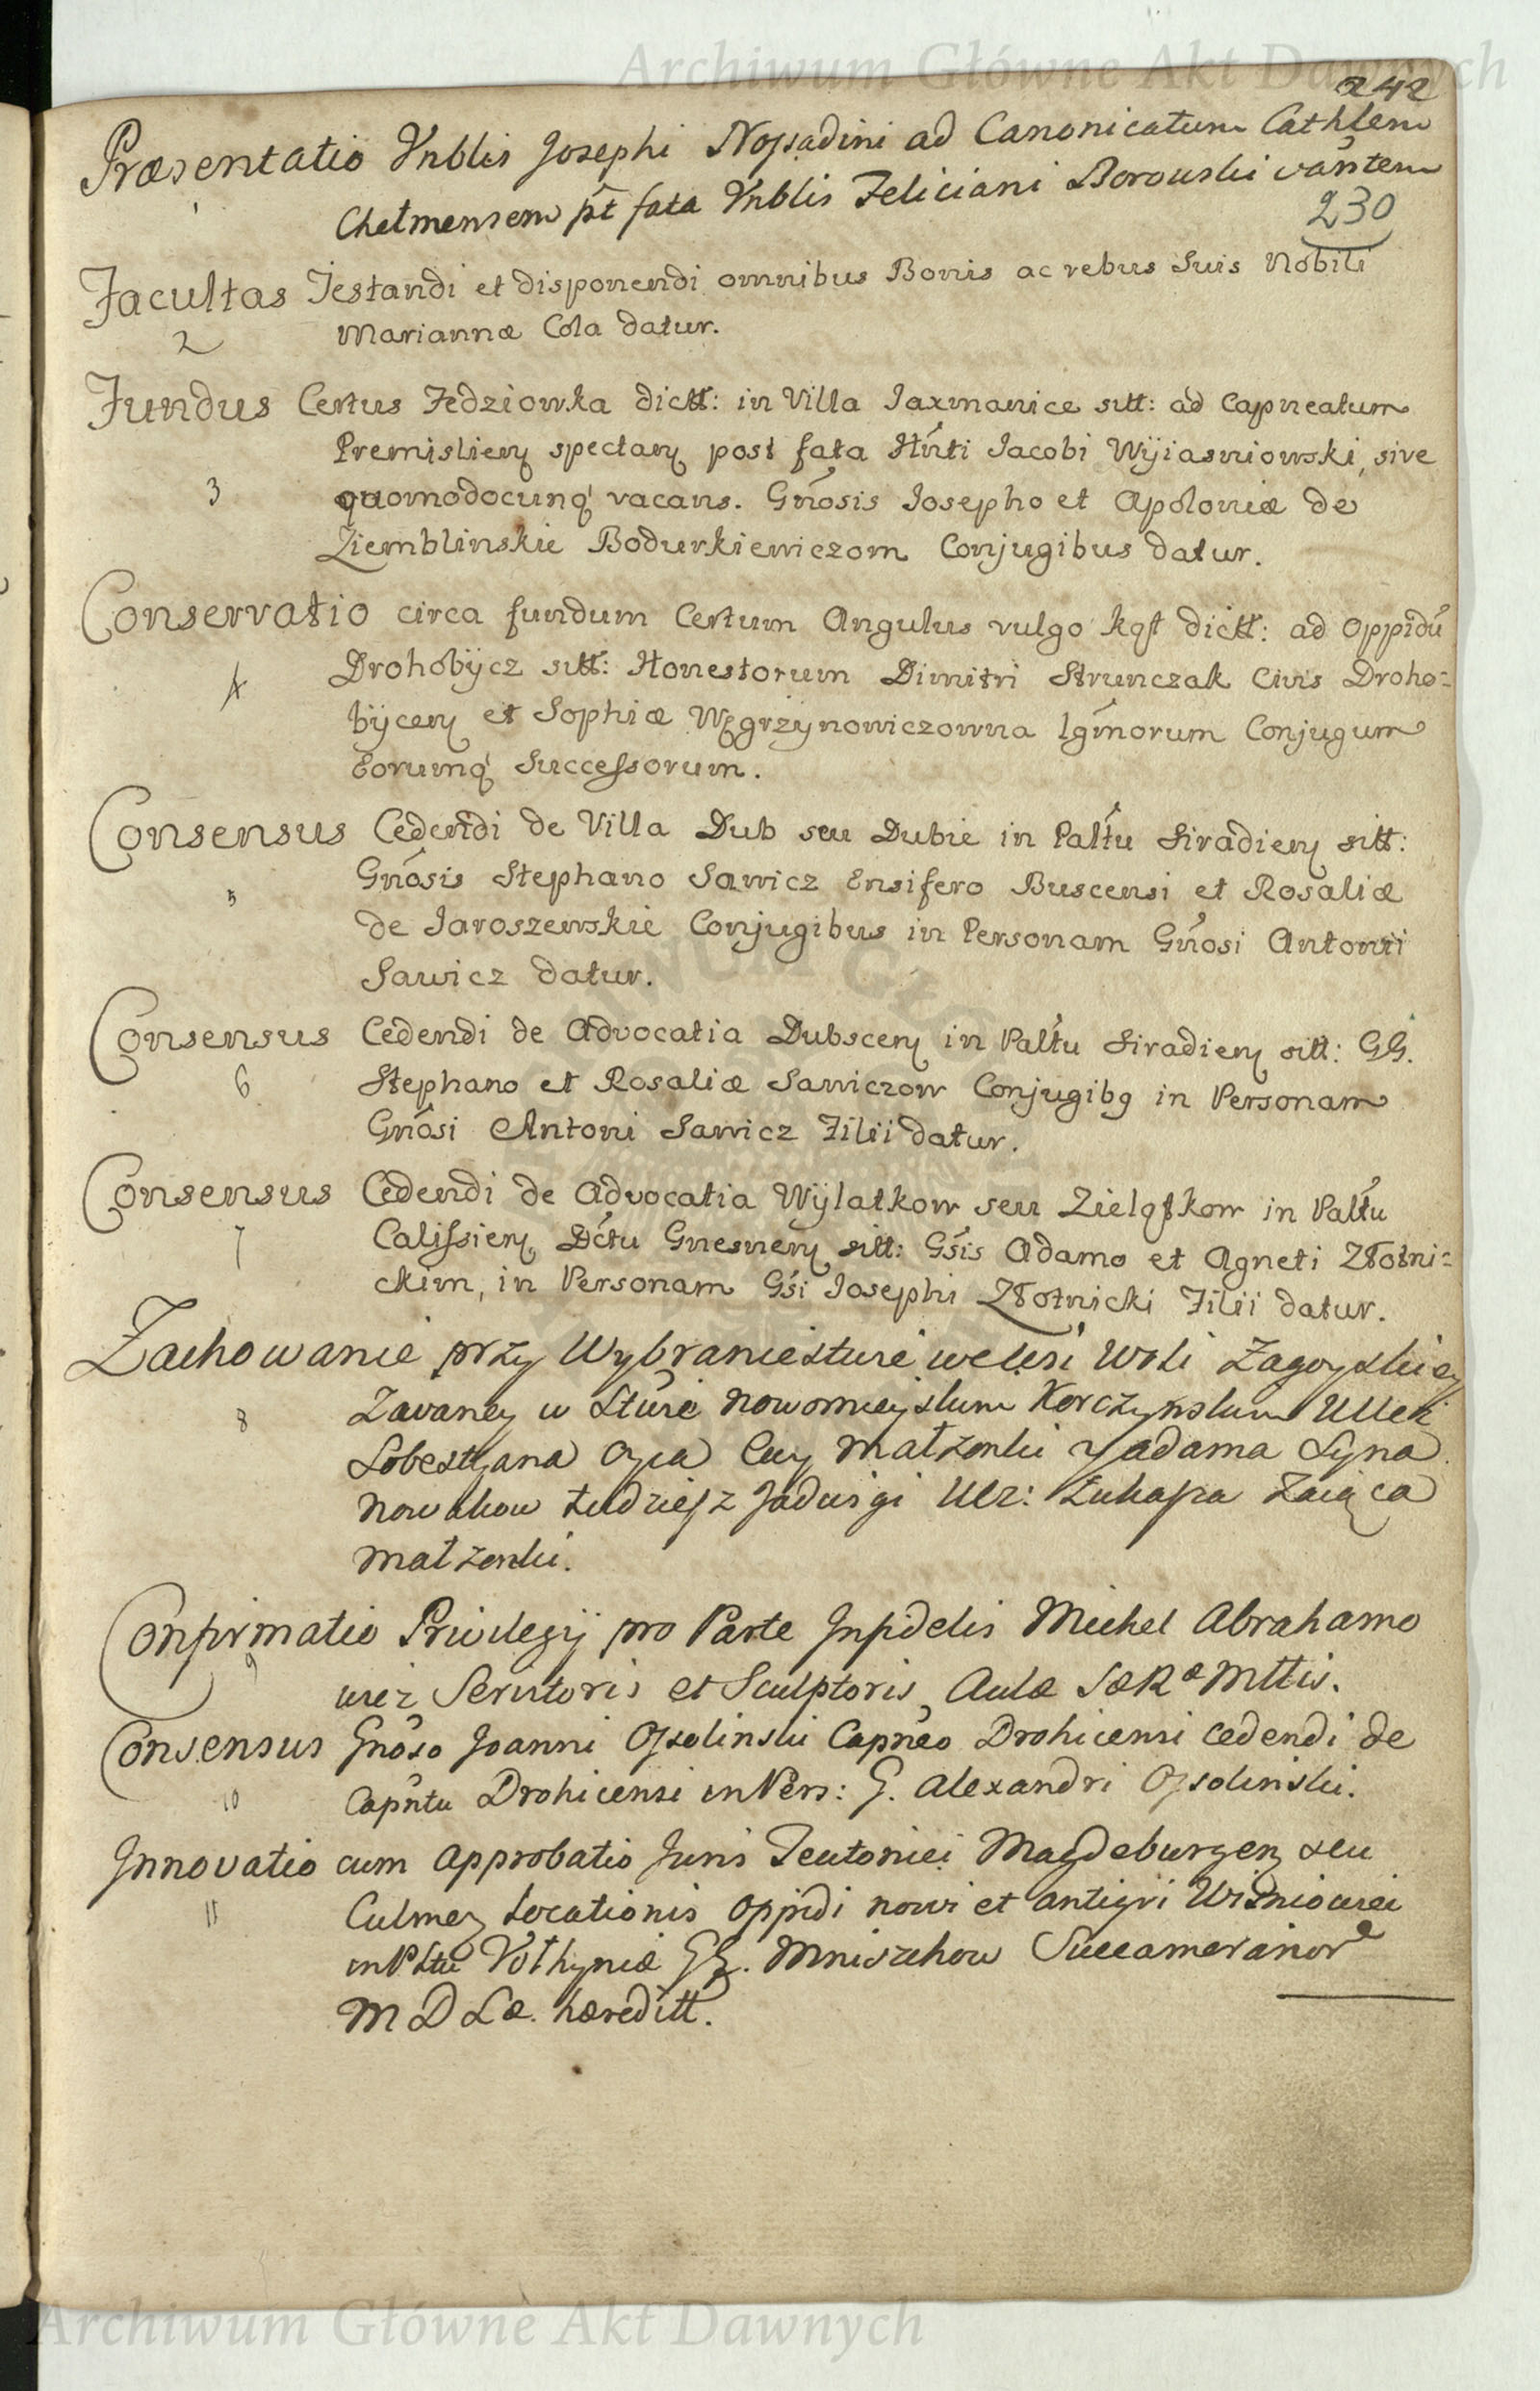 Archiwum Główne Akt Dawnych
242
Præsentatio Vnblis Josephi Nossadini ad Canonicatum Cathlem
1
Chełmensem pt fata Vnblis Feliciani Borowski vantem
230
Facultas Testandi et disponendi omnibus Bonis ac rebus Suis Nobili
2
Mariannæ Cola datur.
Fundus Certus Fedziowka dictt: in Villa Jaxmanice sitt: ad Capneatum
Premislien spectan post fata Hnti Jacobi Wyiasniowski, sive
3
quomodocunq vacans. Gnosis Josepho et Apoloniæ de
Ziemblinskie Bodurkiewiczom Conjugibus datur.
Conservatio circa fundum Certum Angulus vulgo kąt dictt: ad Oppidu
4
Drohobycz sitt: Honestorum Dimitri Strunczak Civis Droho=
bycen et Sophiæ Węgrzynowiczowna lgmorum Conjugum
Eorumq Successorum.
Consensus Cedendi de Villa Dub seu Dubie in Paltu Siradien sitt:
5
Gnosis Stephano Sawicz Ensifero Buscensi et Rosaliæ
de Jaroszewskie Conjugibus in Personam Gnosi Antonii
Sawicz datur.
Consensus Cedendi de Advocatia Dubscen in Paltu Siradien sitt: GG.
6
Stephano et Rosaliæ Sawiczow Conjugibg in Personam
Gnosi Antoni Sawicz Filii datur.
Consensus Cedendi de Advocatia Wylatkow seu Zielątkow in Paltu
7
Calissien, Dctu Gnesnen sitt: Gsis Adamo et Agneti Złotni=
ckim, in Personam Gsi Josephi Złotnicki Filii datur.
Zachowanie przy Wybraniectwie we wsi Woli Zagoyskiey
8
Zwaney w Stwie Nowomieyskim Korczynskim Uller
Sobestyana Oyca Ewy Małżonki y Adama Syna
Nowakow tudziesz Jadwigi Ucz: Łukasza Zaiąca
Małżonki.
Confirmatio Privilegij pro Parte Infidelis Michel Abrahamo
9
wicz Servitoris et Sculptoris Aulæ SæRæMttis.
Consensus Gnoso Joanni Ossolinski Capneo Drohicensi cedendi de
10
Capntu Drohicensi in Pers: G. Alexandri Ossolinski.
Innovatio cum Approbatio Juris Teutonici Magdeburgen seu
11
Culmen Locationis Oppidi novi et antiqvi Wisniowiec
in Pltu Vołhyniæ GG. Mniszchow Succamerarior
M D Læ. hæreditt.
Archiwum Główne Akt Dawnych